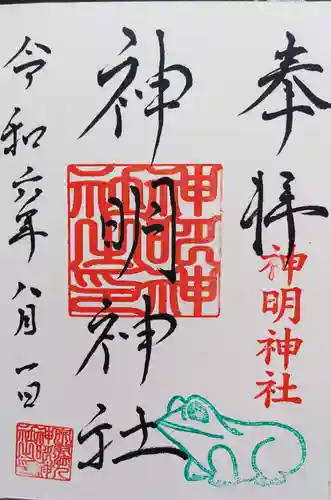 奉拝
神明神社
神明神社
令和六年八月一日